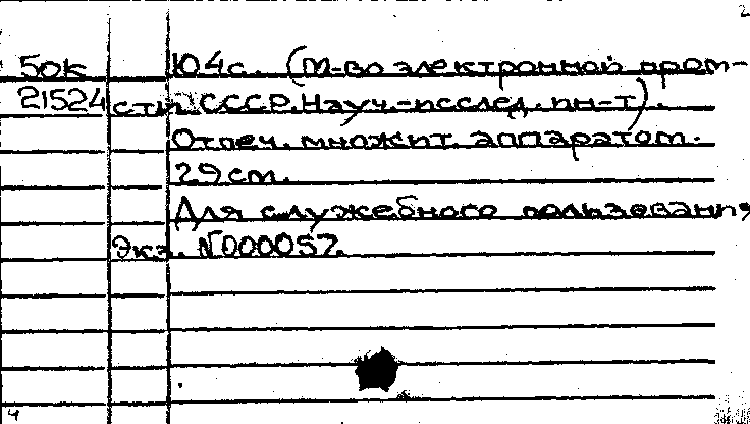 2
50к 104с. (М-во электронной пром-
21524 сти СССР. Науч.-исслед. ин-т).
Отпеч. множит. аппаратом.
29 см.
Для служебного пользования
Экз. N000057.
4